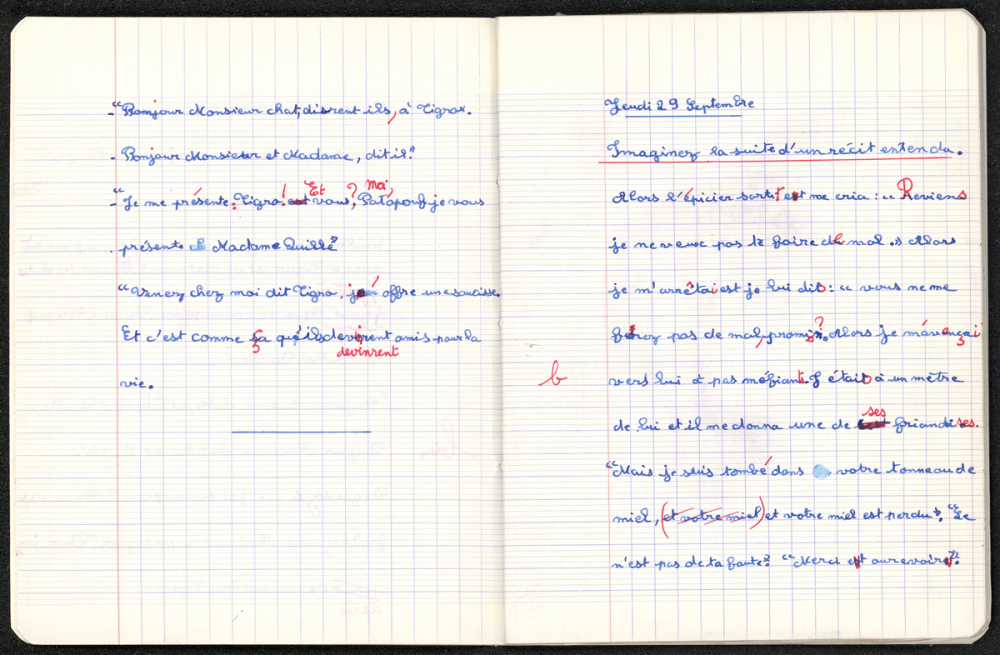 -"Bonjour Monsieur chat, disrent ils, à Tigrax.
- Bonjour Monsieur et Madame, dit il."
-"Je me présente: Tigra! Et vous? Moi, Patapouf je vous
présente Madame Quille"
"Venez chez moi dit Tigra, j' offre une saucisse.
Et c'est comme ça qu'ils devinrent amis pour la
devinrent
vie.
Jeudi 29 Septembre
Imaginez la suite d'un récit entendu.
Alors l'épicier sortit et me cria : "Reviens
je ne veux pas te faire de mal." Alors
je m'arrêtai est je lui dit : "vous ne me
ferez pas de mal, promis? Alors je m'avançai
vers lui à pas méfiant. J'était à un mètre
de lui et il me donna une de ses friandises.
b
"Mais je suis tombé dans votre tonneau de
miel, (et votre miel) et votre miel est perdu". "Ce
n'est pas de ta faute". "Merci et aurevoire".